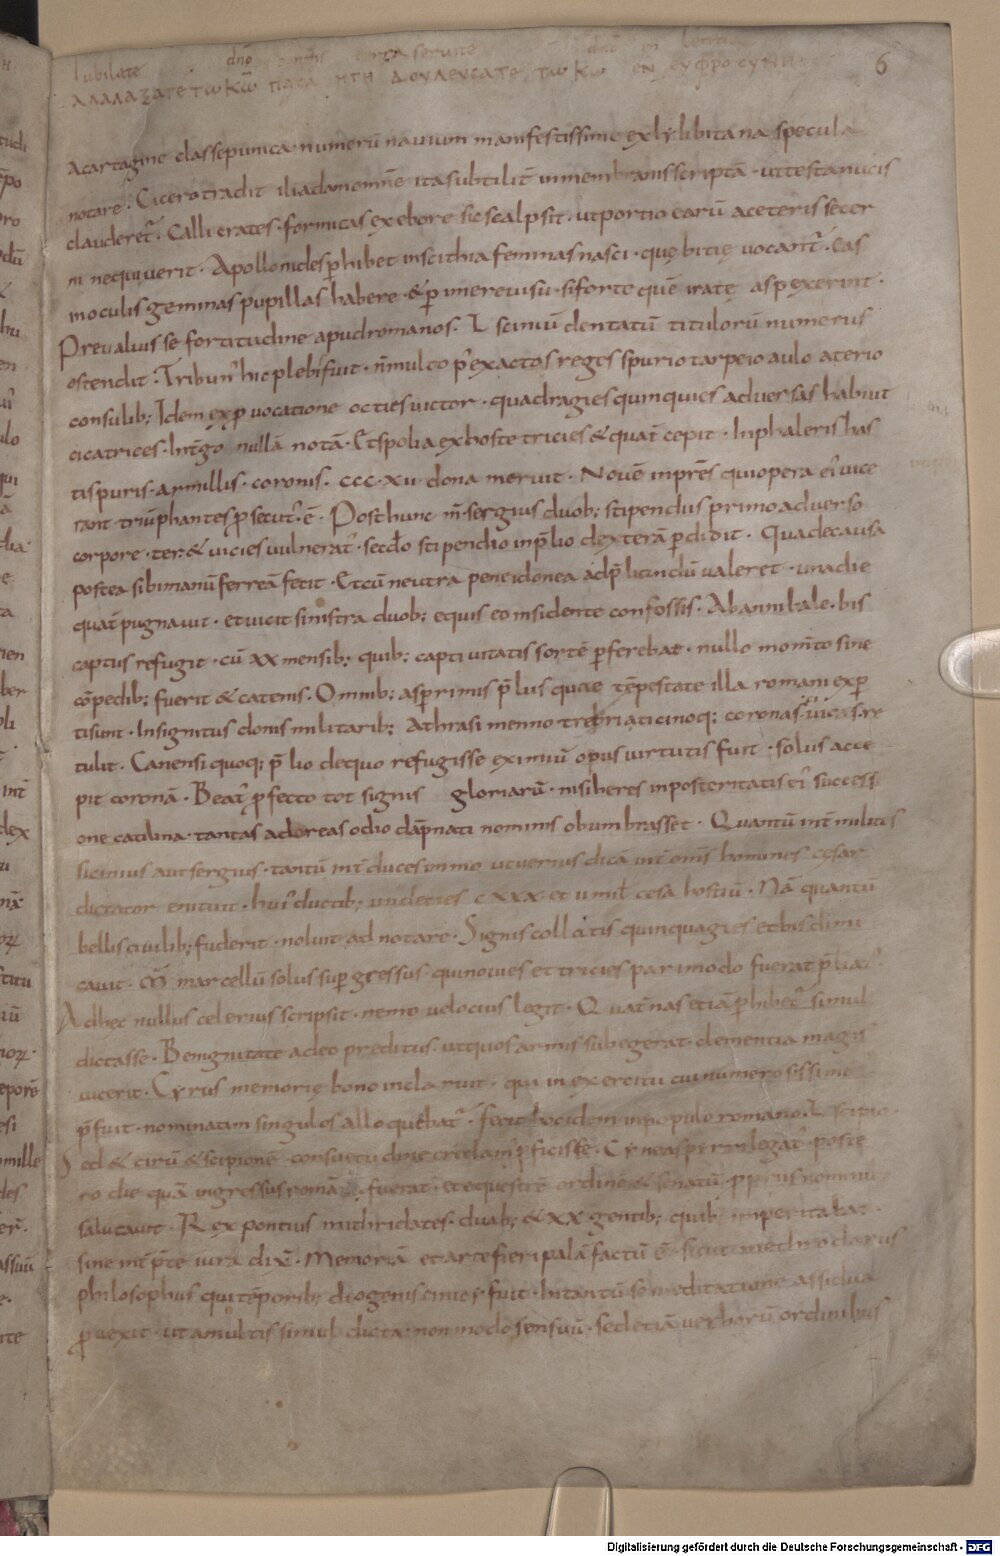 Iubilate dno omnis terra servite dno in letitia
ΑΛΑΛΑΞΑΤΕ ΤΩ ΚΩ ΠΑCΑ Η ΓΗ ΔΟΥΛΕΥCΑΤΕ ΤΩ ΚΩ ΕΝ ΕΥΦΡΟCΥΝΗ
6
Acartagine classepunica numerū navium manifestissime exlylibitana specula
notare. Cicero tradit iliadamomnē itasubtilit̄ inmembranisscriptā uttestanucis
clauderet̄. Callicrates formicas exebore sicscalpsit. utportio earū aceterissecer
ni nequiverit. Apollonides p̄hibet inscithia feminas nasci quę bitię vocant̄. Eas
inoculis geminas pupillas habere & p̄imerevisu siforte quē iratę aspexerint.
Prevaluisse fortitudine apudromanos. L sciniū dentatū titulorū numerus
ostendit. Tribun' hic plebisfuit nmulto p' exactos reges spurio tarpeio aulo aterio
consulib; Idem exp̄vocatione octiesvictor quadragiesquinquies adversas habuit
cicatrices. Int̄go nullā notā. Etspolia exhoste tricies & quat̄ cepit. Inphaleris has
tispuris armillis. coronis. CCC.XII dona meruit. Novē inprēs quiopera ei' vice
rant triūphantes p̄secut' ē. Posthunc m̄ sergius duob; stipendiis primo adverso
corpore ter & vicies vulnerat'. secdo stipendio inp̄lio dexterā p̄didit. Quadecausa
postea sibimanū ferreā fecit. Etcū neutra peneidonea adp̄liandū valeret unadie
quat̄ pugnavit. etvicit sinistra duob; equis eo insidente confossis. Abannibale bis
captus refugit. cū XX mensib; quib; captivitatis sortē p̄ferebat. nullo momto sine
cōpedib; fuerit & catenis. Omnib; asp̄rimis p̄liis quae tēpestate illa romani exp̄
tisunt. Insignitus donis militarib; Athrasimenno trebriaticinoq; coronas civicas re
tulit. Canensi quoq; p̄lio dequo refugisse eximiū opus virtutis fuit. solus acce
pit coronā. Beat' p̄fecto tot signis gloriarū nisiheres inposteritatis ei' successi
one catilina tantas adoreas odio dāp̄nati nominis obumbrasset. Quantū int̄ milites
sicinius aut sergius tantū int̄ duces immo utverius dicā int̄ omīs homines cesar
dictator enituit. hui' ductib; undecies c XXX et II mil cesa hostiū. Nā quantū
bellis civilib; fuderit noluit adnotare. Signis collatis quinquagies et bis dimi
cavit. M̄ marcellū solus sup̄gressus qui novies et tricies parimodo fuerat p̄liat'.
Adhec nullus celerius scripsit. nemo velocius legit. Quat̄nas etiā p̄hibet' simul
dictasse. Benignitate adeo preditus utquos armis subegerat clementia magis
vicerit. Cyrus memorię bono inclaruit. qui in exercitu cui numerosissimo
p̄fuit nominatim singulos alloquebat'. fecit hoc idem inpopulo romano. L scipio.
Sed & cirū & scipionē consuetudine credam p̄fecisse. Cyneas pyrri legat' poste
ro die quā ingressus romā fuerat. et equestrē ordinē & senatū p̄priis nomini
salutavit. Rex pontius mithridates duab; & XX gentib; quib; imperitabat.
sine int̄p̄te iura dix̄. Memoriā et arte fieri palā factū ē. sicut methrodorus
philosophus qui tēporib; diogenis cinici fuit. Intantū se meditatione assidua
p̄vexit. ut a multis simul dicta non modo sensuū. sed etiā verborū ordinibus
Digitalisierung gefördert durch die Deutsche Forschungsgemeinschaft - DFG